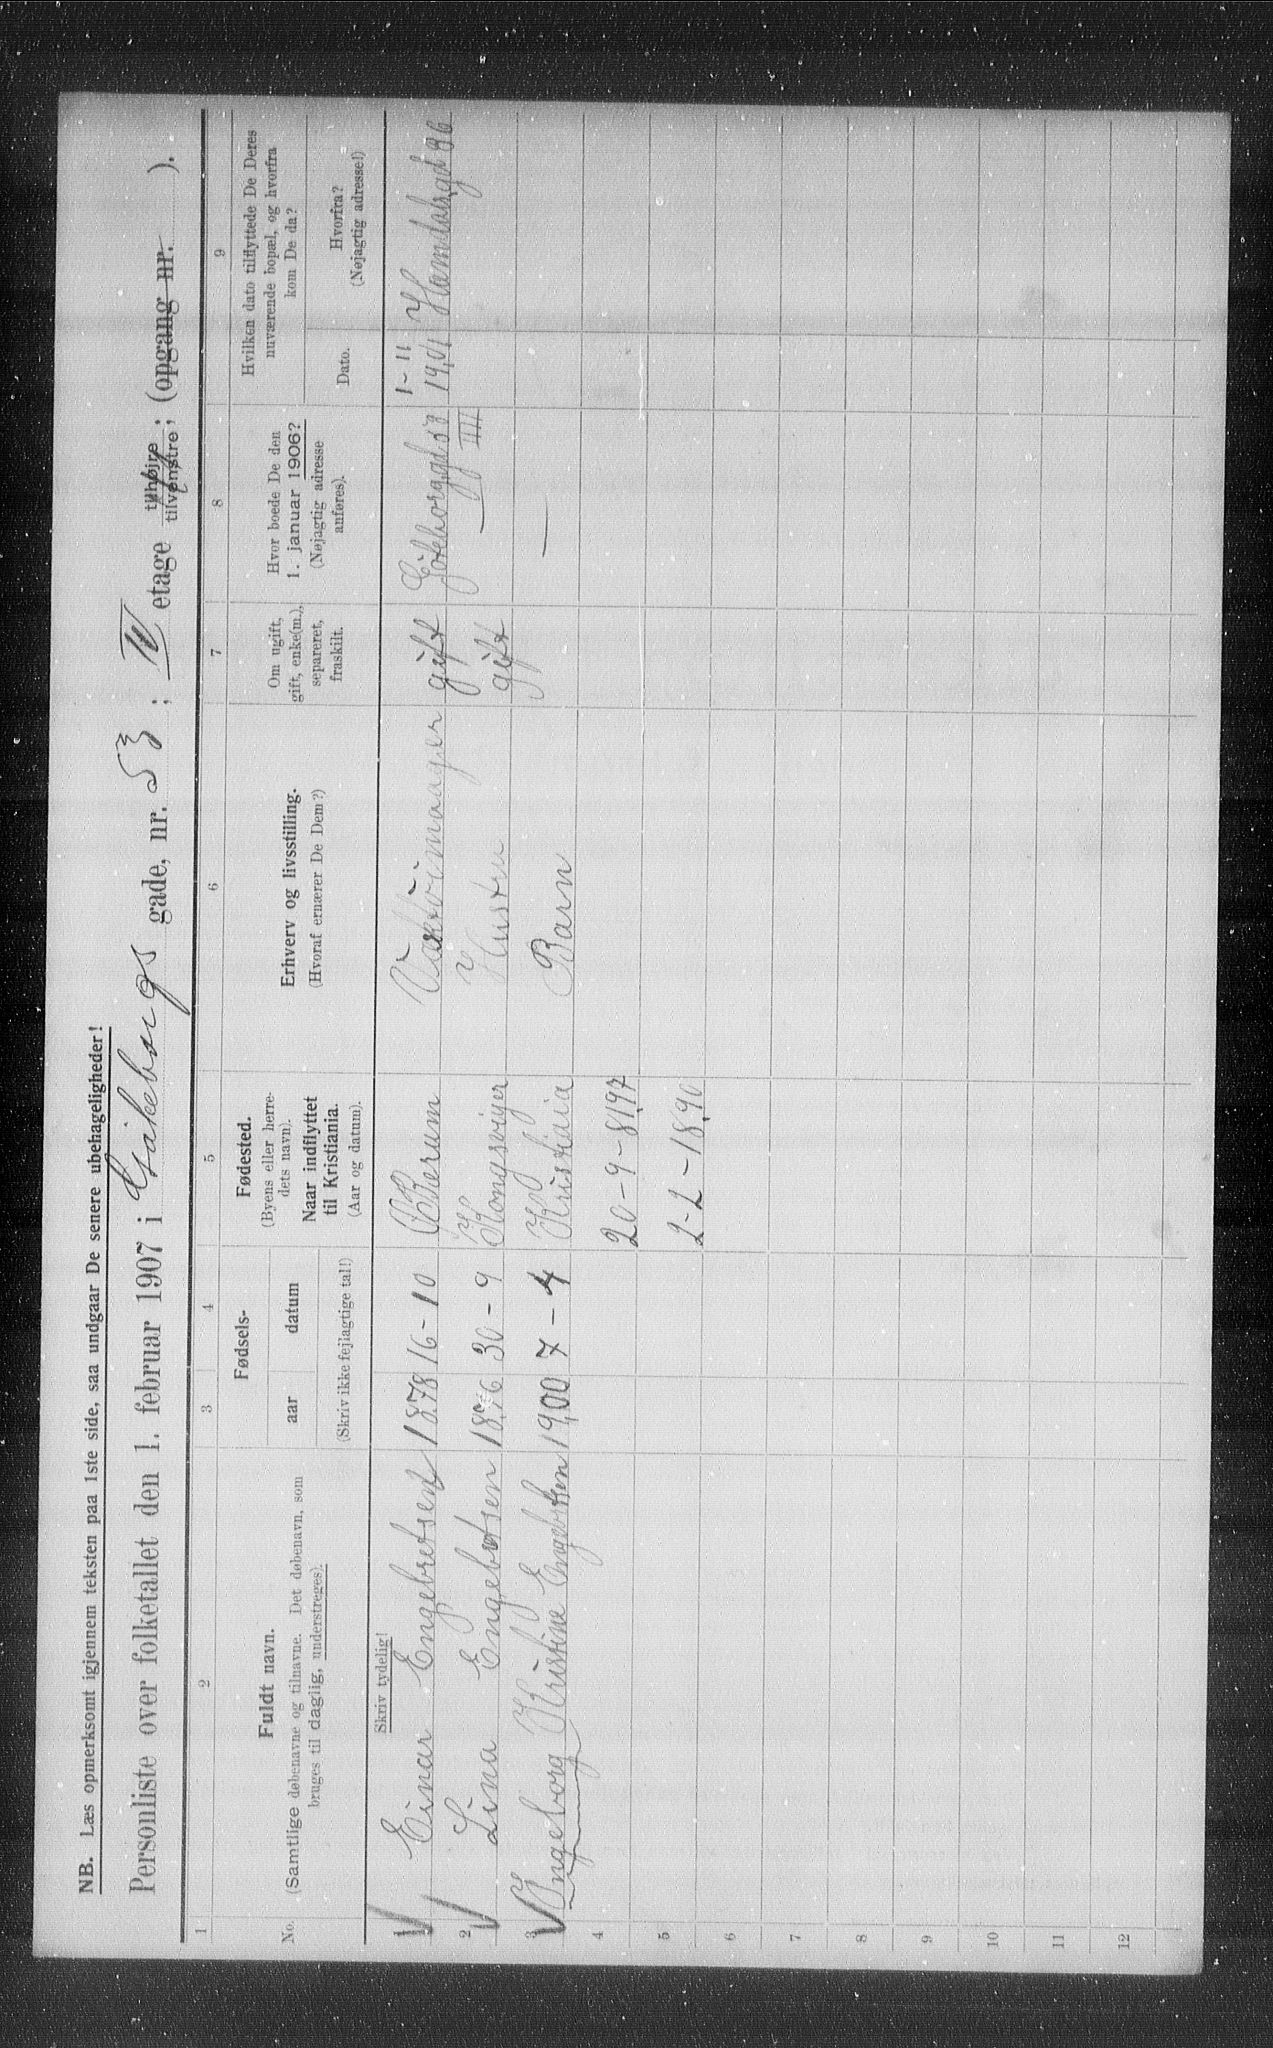 NB. Læs opmerksomt igjennem teksten paa 1ste side, saa undgaar De senere ubehageligheder!
Personliste over folketallet den 1. februar 1907 i Gjøteborgs gade, nr. 53; IV etage tilhøjre tilvenstre; (opgang nr. ).
1 2 3 4 5 6 7 8 9
No.
Fuldt navn.
(Samtlige døbenavne og tilnavne. Det døbenavn, som
bruges til daglig, understreges).
Fødsels-
aar datum
(Skriv ikke fejlagtige tal!)
Fødested.
(Byens eller herre-
dets navn).
Naar indflyttet
til Kristiania.
(Aar og datum).
Erhverv og livsstilling.
(Hvoraf ernærer De Dem?)
Om ugift,
gift, enke(m.),
separeret,
fraskilt.
Hvor boede De den
1. januar 1906?
(Nøjagtig adresse
anføres).
Hvilken dato tilflyttede De Deres
nuværende bopæl, og hvorfra
kom De da?
Dato.
Hvorfra?
(Nøjagtig adresse!)
Skriv tydelig!
1 Einar Engebretsen 1878 16-10 Berum gift Gøteborggd 53 IIII 1-11 1901
2 Lina Engebretsen 1876 30-9 Kongsviger Hustru gift —
3 Ingeborg Kristine Engebretsen 1900 7-4 Kristiania Barn —
4 20-9-1897
5 2-2-1890
6
7
8
9
10
11
12